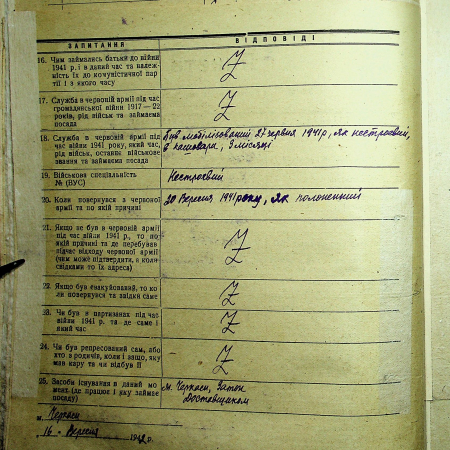 ЗАПИТАННЯ ВІДПОВІДІ
16. Чим займались батьки до війни
1941 р. і в даний час та належ-
ність їх до комуністичної пар-
тії і з якого часу
Z
17. Служба в червоній армії під час
громадянської війни 1917—22
років, рід військ та займаєма
посада
Z
18. Служба в червоній армії під
час війни 1941 року, який час,
рід військ, останнє військове
звання та займаєма посада
Був мобілісований 27 червня 1941 р, як нестроєвий,
3 місяці
19. Військова спеціальність
№ (ВУС)
Нестроєвий
20. Коли повернувся з червоної
армії та по якій причині
20 Вересня 1941 року, як полоненний
21. Якщо не був в червоній армії
під час війни 1941 р., то по
якій причині та де перебував
підчас відходу червоної армії
(чим може підтвердити, а коли
свідками то їх адреса)
Z
22. Якщо був евакуйований, то ко-
ли повернувся та звідки саме
Z
23. Чи був в партизанах під час
війни 1941 р. та де саме і
який час
Z
24. Чи був репресований сам, або
хто в родичів, коли і защо, яку
мав кару та чи відбув її
Z
25. Засоби існування в даний мо-
мент (де працює і яку займає
посаду)
м. Черкаси, Затон
Доставщиком
м. Черкаси
16 - Вересня 1942 р.